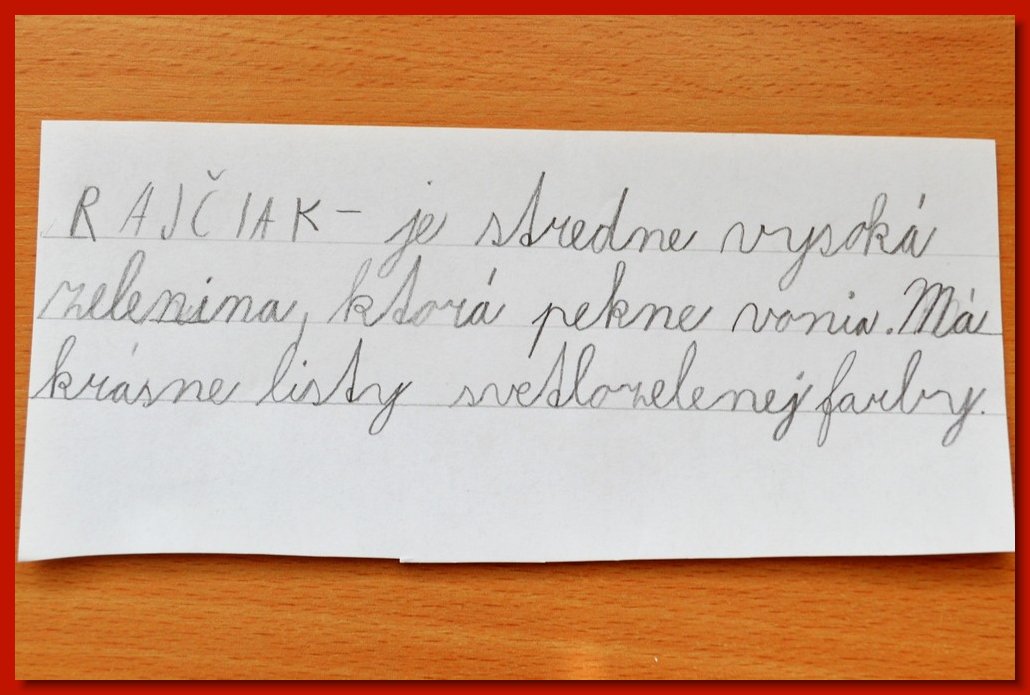 RAJČIAK - je stredne vysoká
zelenina, ktorá pekne vonia. Má
krásne listy svetlozelenej farby.